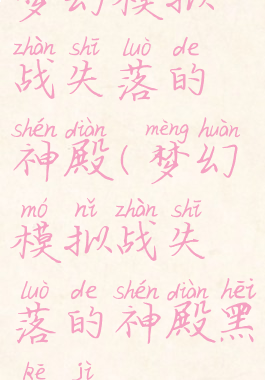 梦幻模拟
zhàn shī luò de
战失落的
shén diàn mèng huàn
神殿(梦幻
mó nǐ zhàn shī
模拟战失
luò de shén diàn hēi
落的神殿黑
kē jì